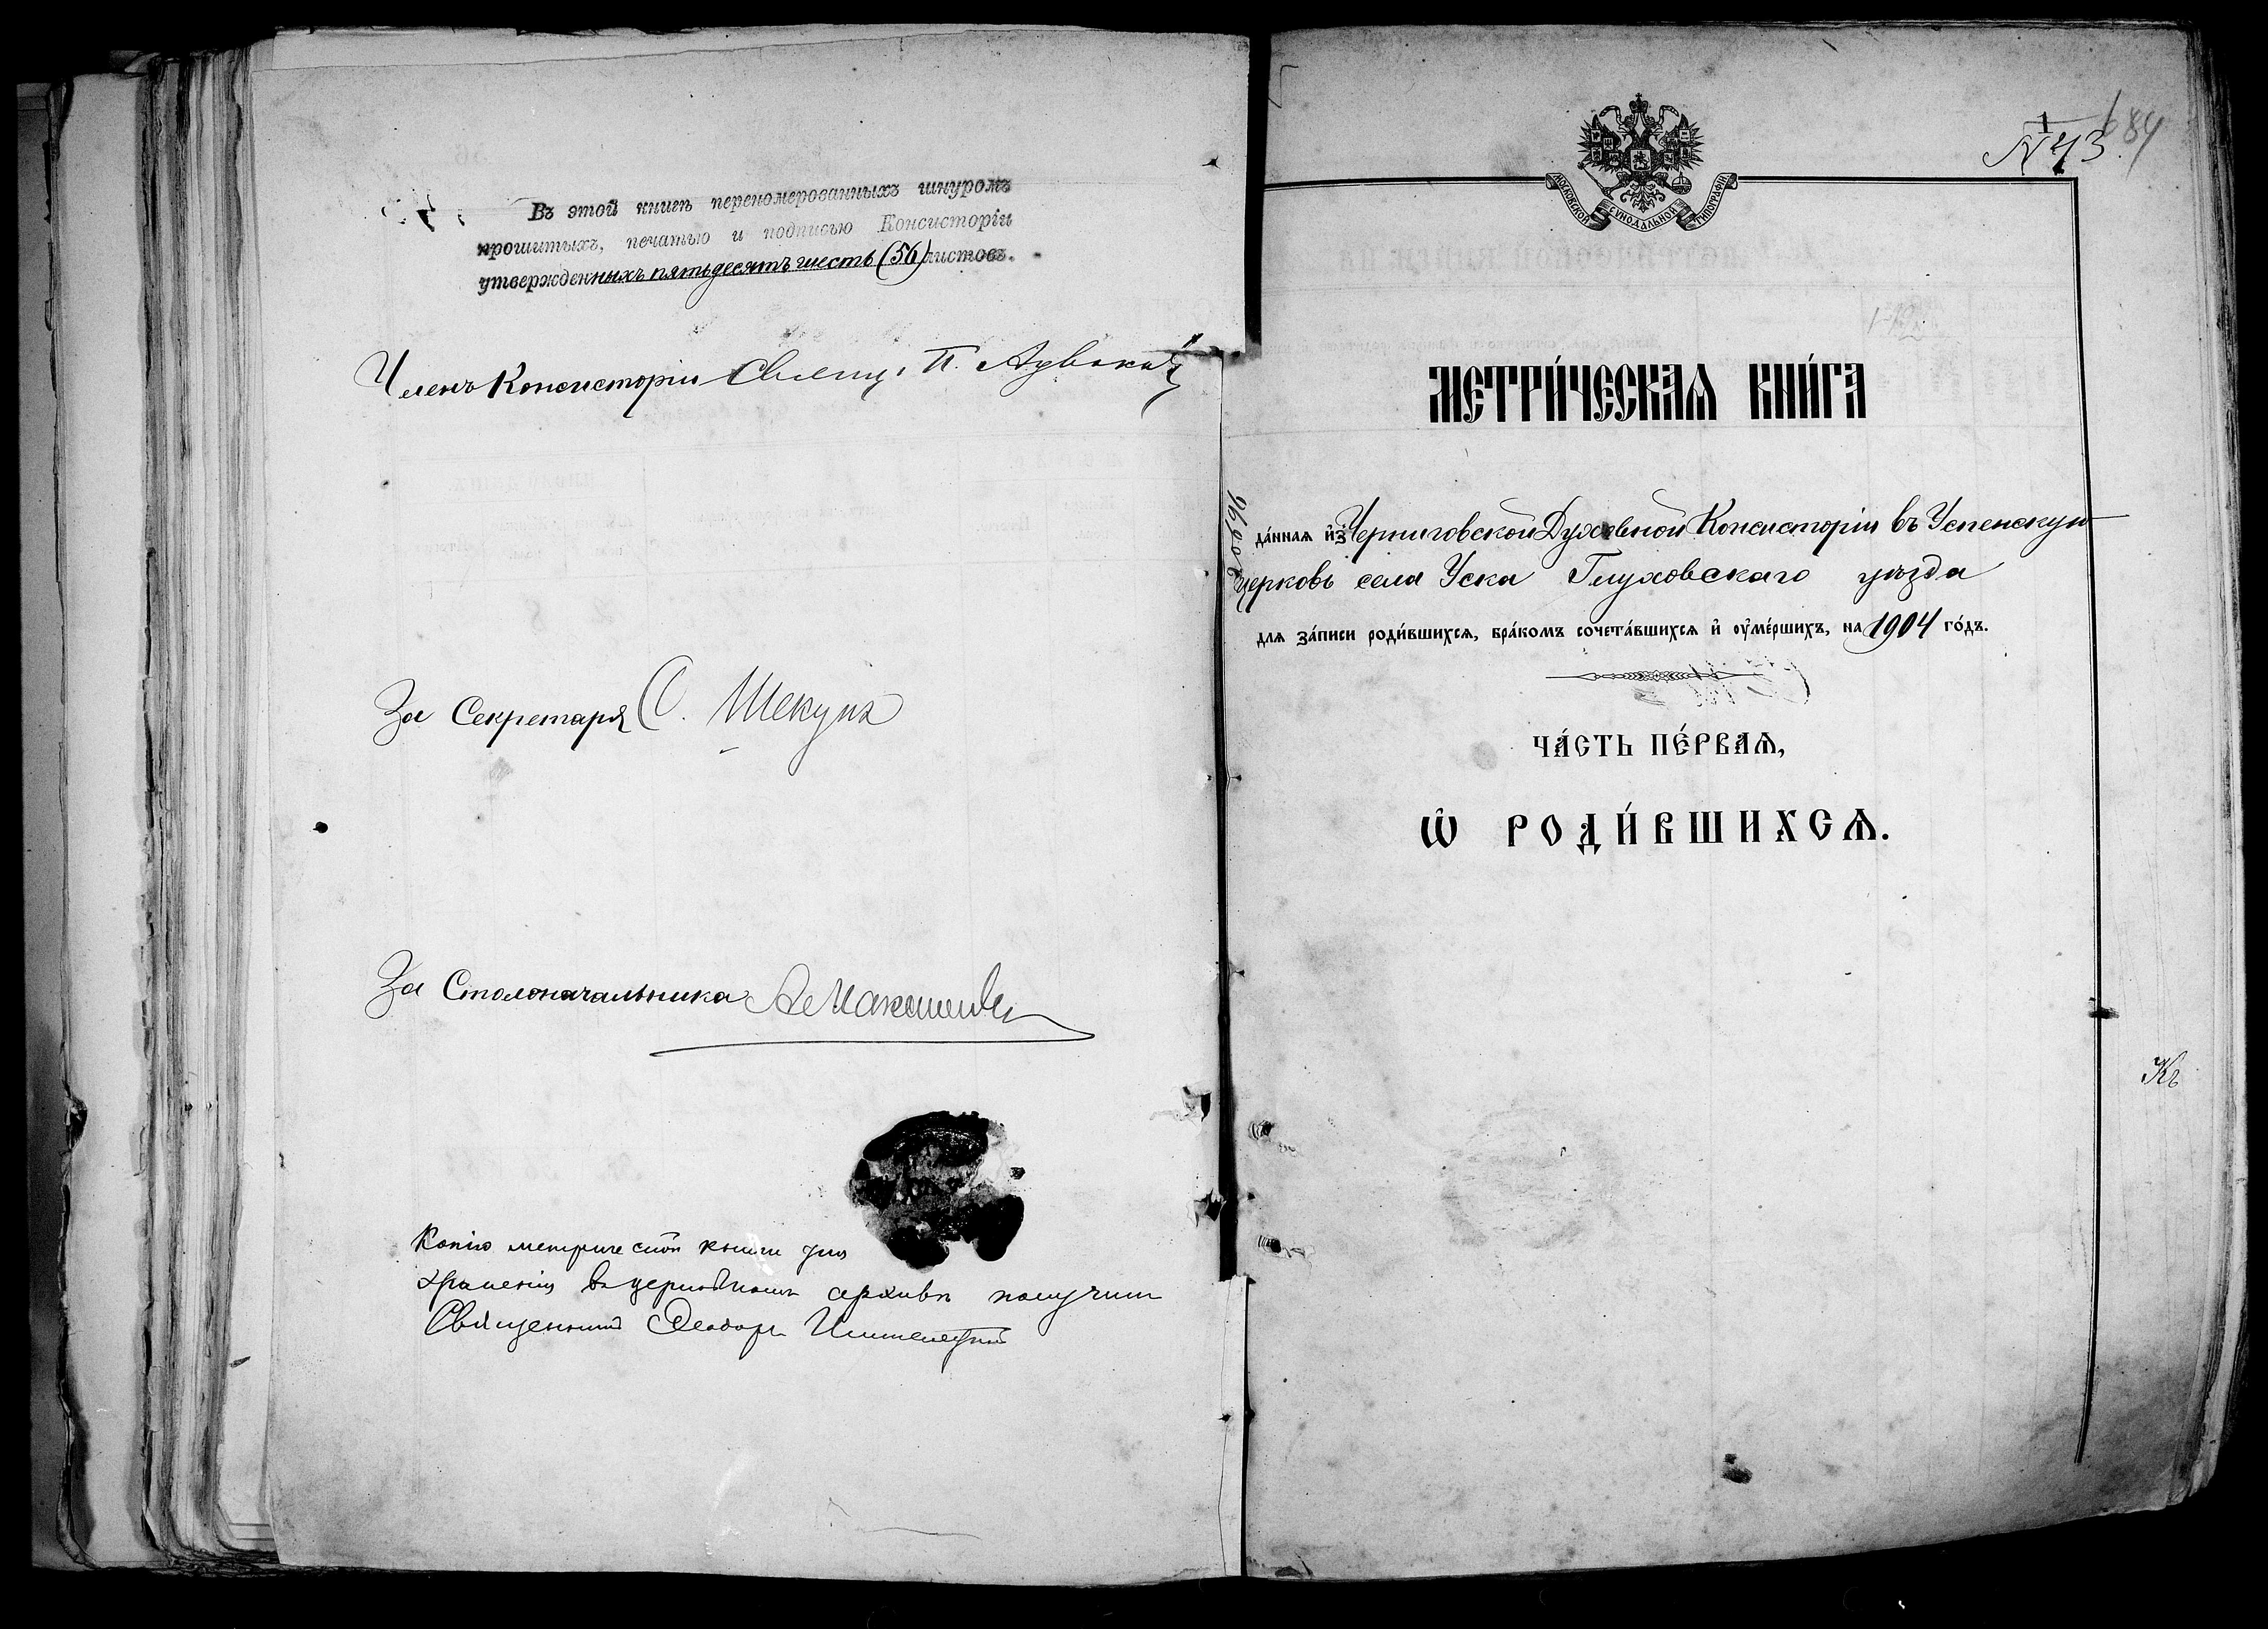 Въ этой книгѣ перепомерованныхъ шнуромъ
прошитыхъ, печатью и подписью Консисторіи
утвержденныхъ пятьдесятъ шесть (56) листовъ.
Членъ Консисторіи Священ. П.
За Секретаря С. Шекунъ
За Столоначальника
Копію метрической книги для
храненія въ церковномъ архивѣ получилъ
Священникъ Ѳеодоръ
684
N 43
МОСКОВСКОЙ СѴНОДАЛЬНОЙ ТИПОГРАФІИ
МЕТРИ́ЧЕСКАѦ КНИ́ГА
да́ннаѧ и҆зъ Черниговской Духовной Консисторіи въ Успенскую
церковь села Уска Глуховскаго уѣзда
для за́писи роди́вшихсѧ, бра́комъ сочета́вшихсѧ и҆ оу҆ме́ршихъ, на 1904 го́дъ.
ЧА́СТЬ ПЕ́РВАѦ,
Ѽ РОДИ́ВШИХСѦ.
Къ